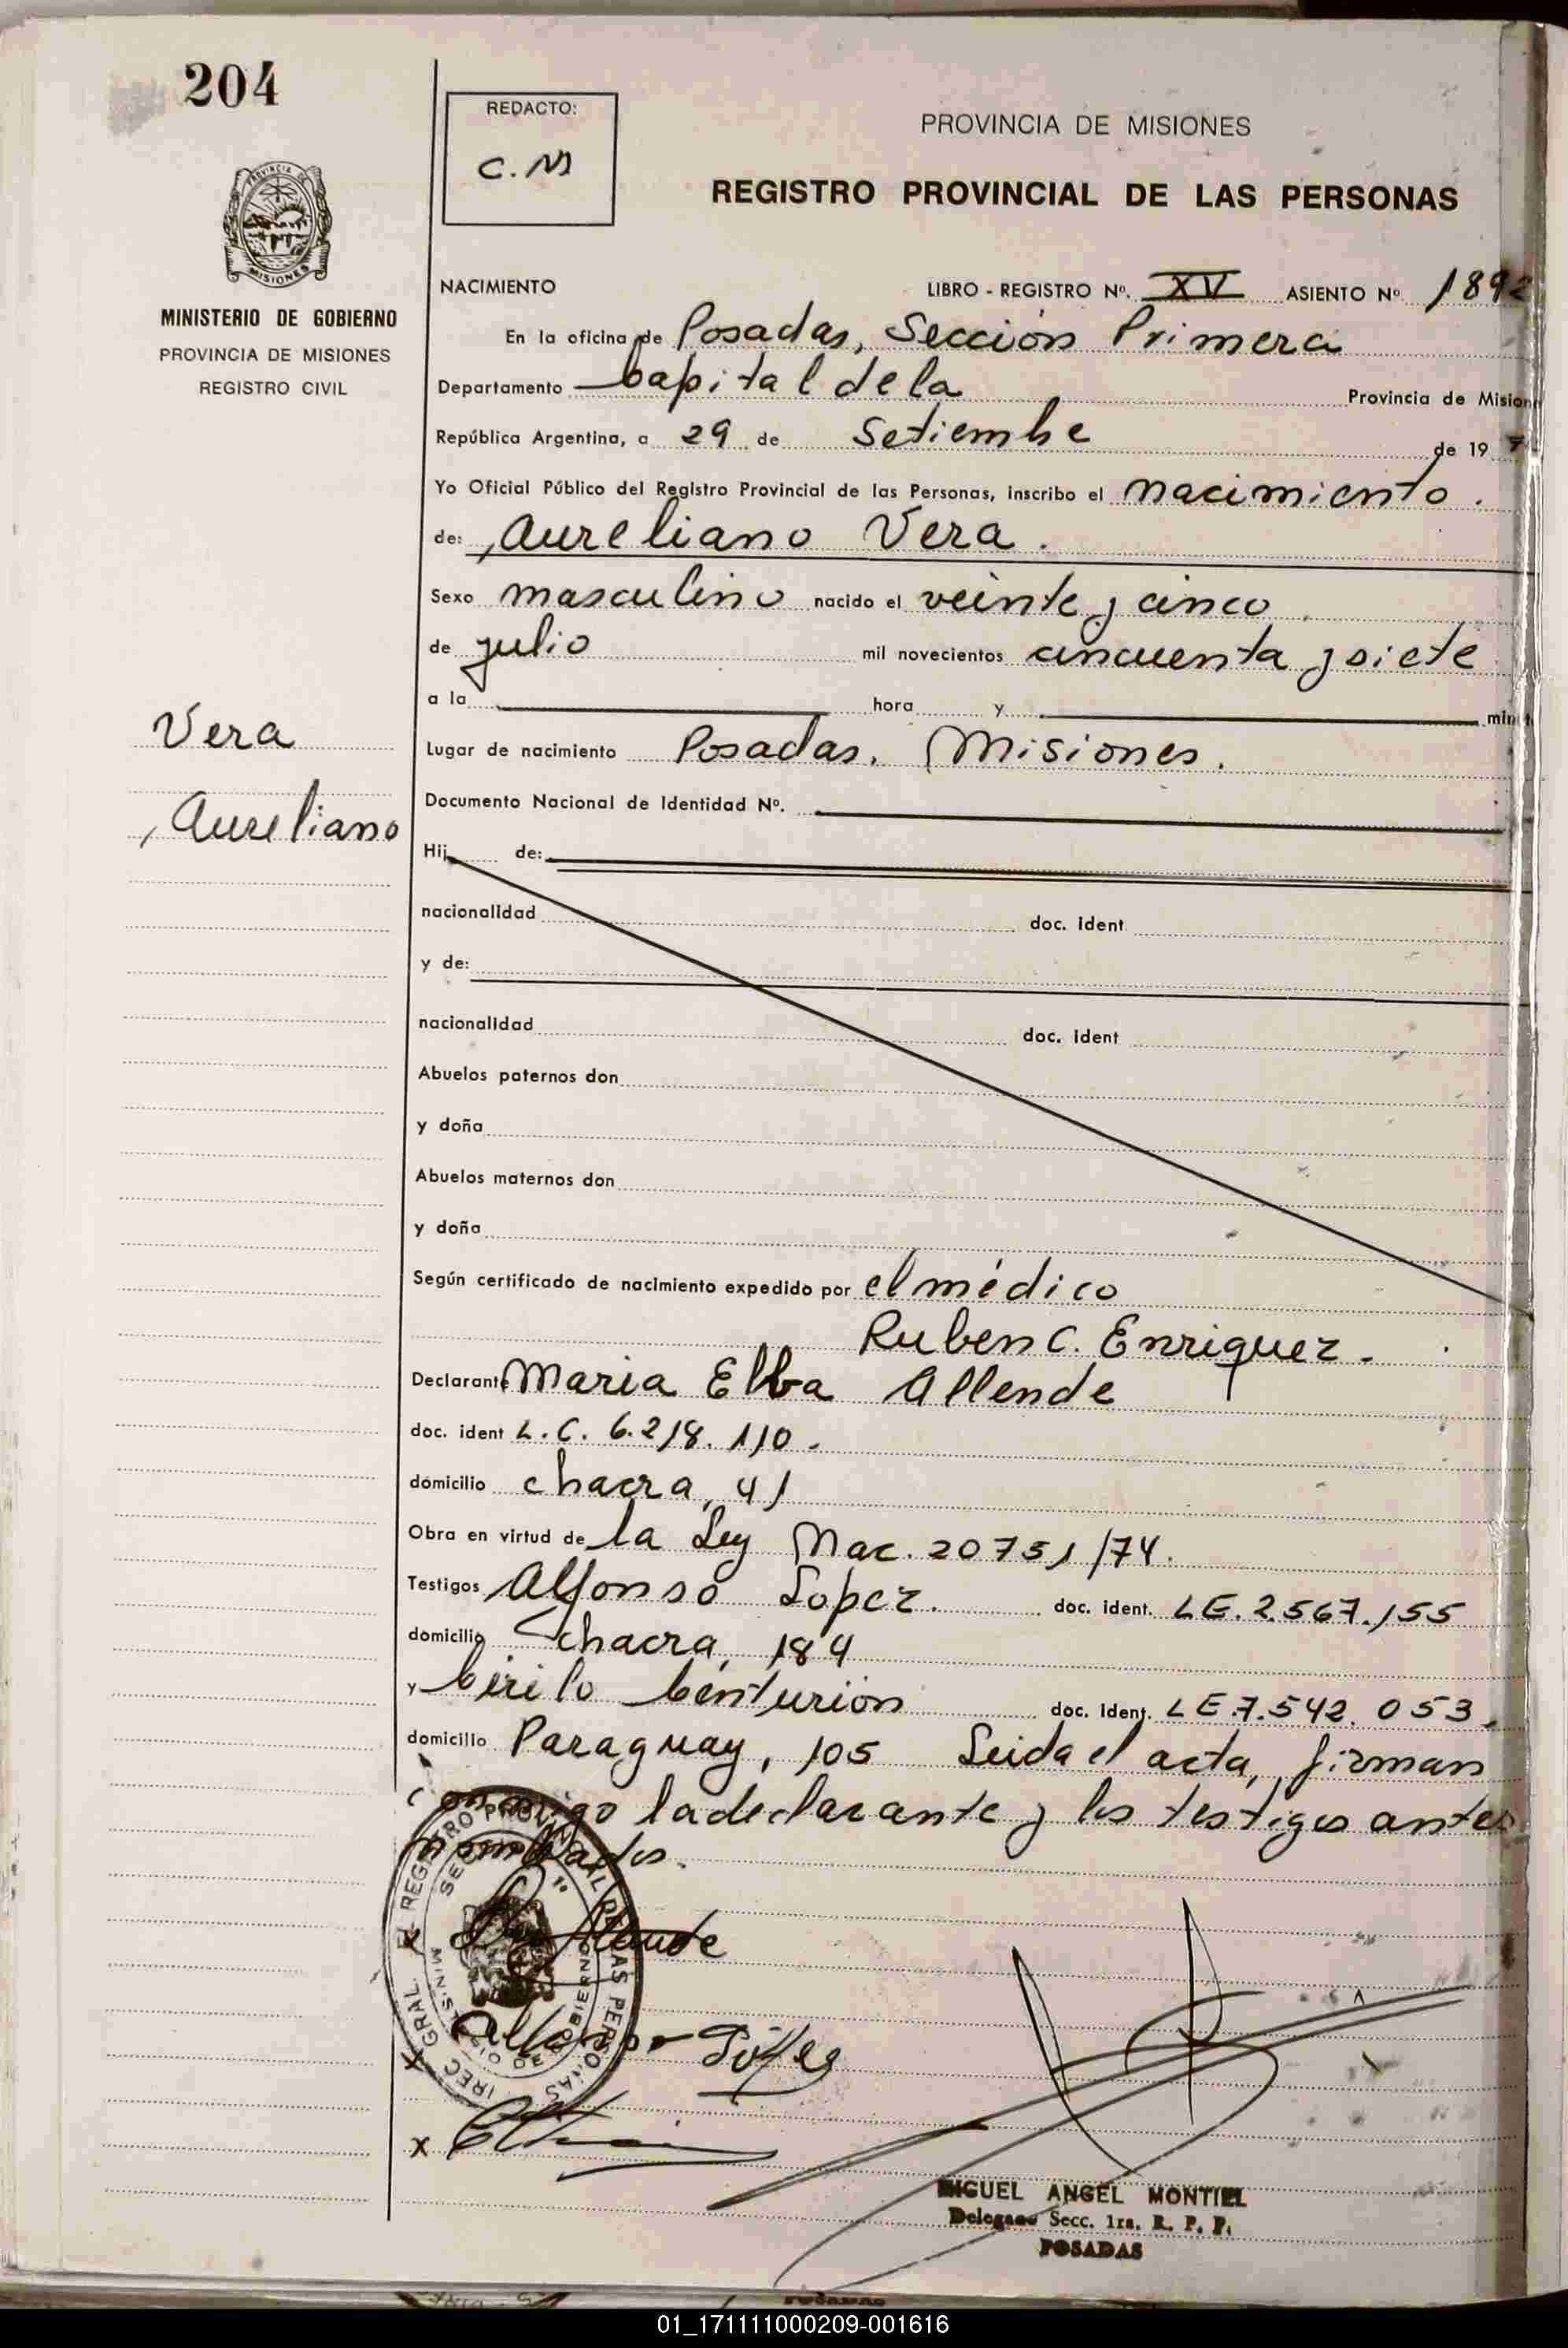 204
REDACTO:
C. M
PROVINCIA DE MISIONES
REGISTRO PROVINCIAL DE LAS PERSONAS
MINISTERIO DE GOBIERNO
PROVINCIA DE MISIONES
REGISTRO CIVIL
NACIMIENTO LIBRO - REGISTRO Nº. XV ASIENTO Nº 1892
En la oficina de Posadas, Sección Primera
Departamento Capital de la Provincia de Mision
República Argentina, a 29 de Setiembre de 19 7
Yo Oficial Público del Registro Provincial de las Personas, inscribo el nacimiento.
de: Aureliano Vera.
Sexo masculino nacido el veinte y cinco
de julio mil novecientos cincuenta y siete
a la hora y min
Vera
Aureliano
Lugar de nacimiento Posadas. Misiones.
Documento Nacional de Identidad Nº.
Hij de:
nacionalidad doc. ident
y de:
nacionalidad doc. ident
Abuelos paternos don
y doña
Abuelos maternos don
y doña
Según certificado de nacimiento expedido por el médico
Ruben C. Enriquez.
Declarante Maria Elba Allende
doc. ident L.C. 6.218.110.
domicilio chacra, 41
Obra en virtud de la Ley Nac. 20751/74.
Testigos Alfonso Lopez. doc. ident. LE. 2.567.155
domicilio chacra, 184
y Cirilo Centurión doc. ident. LE 7.542.053.
domicilio Paraguay, 105 Leida el acta, firman
conmigo la declarante y los testigos antes
nombrados.
x Allende
x Alfonso López
x
DIREC. GRAL. DEL REGISTRO PROVINCIAL DE LAS PERSONAS
MINISTERIO DE GOBIERNO
MIGUEL ANGEL MONTIEL
Delegado Secc. 1ra. R. P. P.
POSADAS
01_171111000209-001616